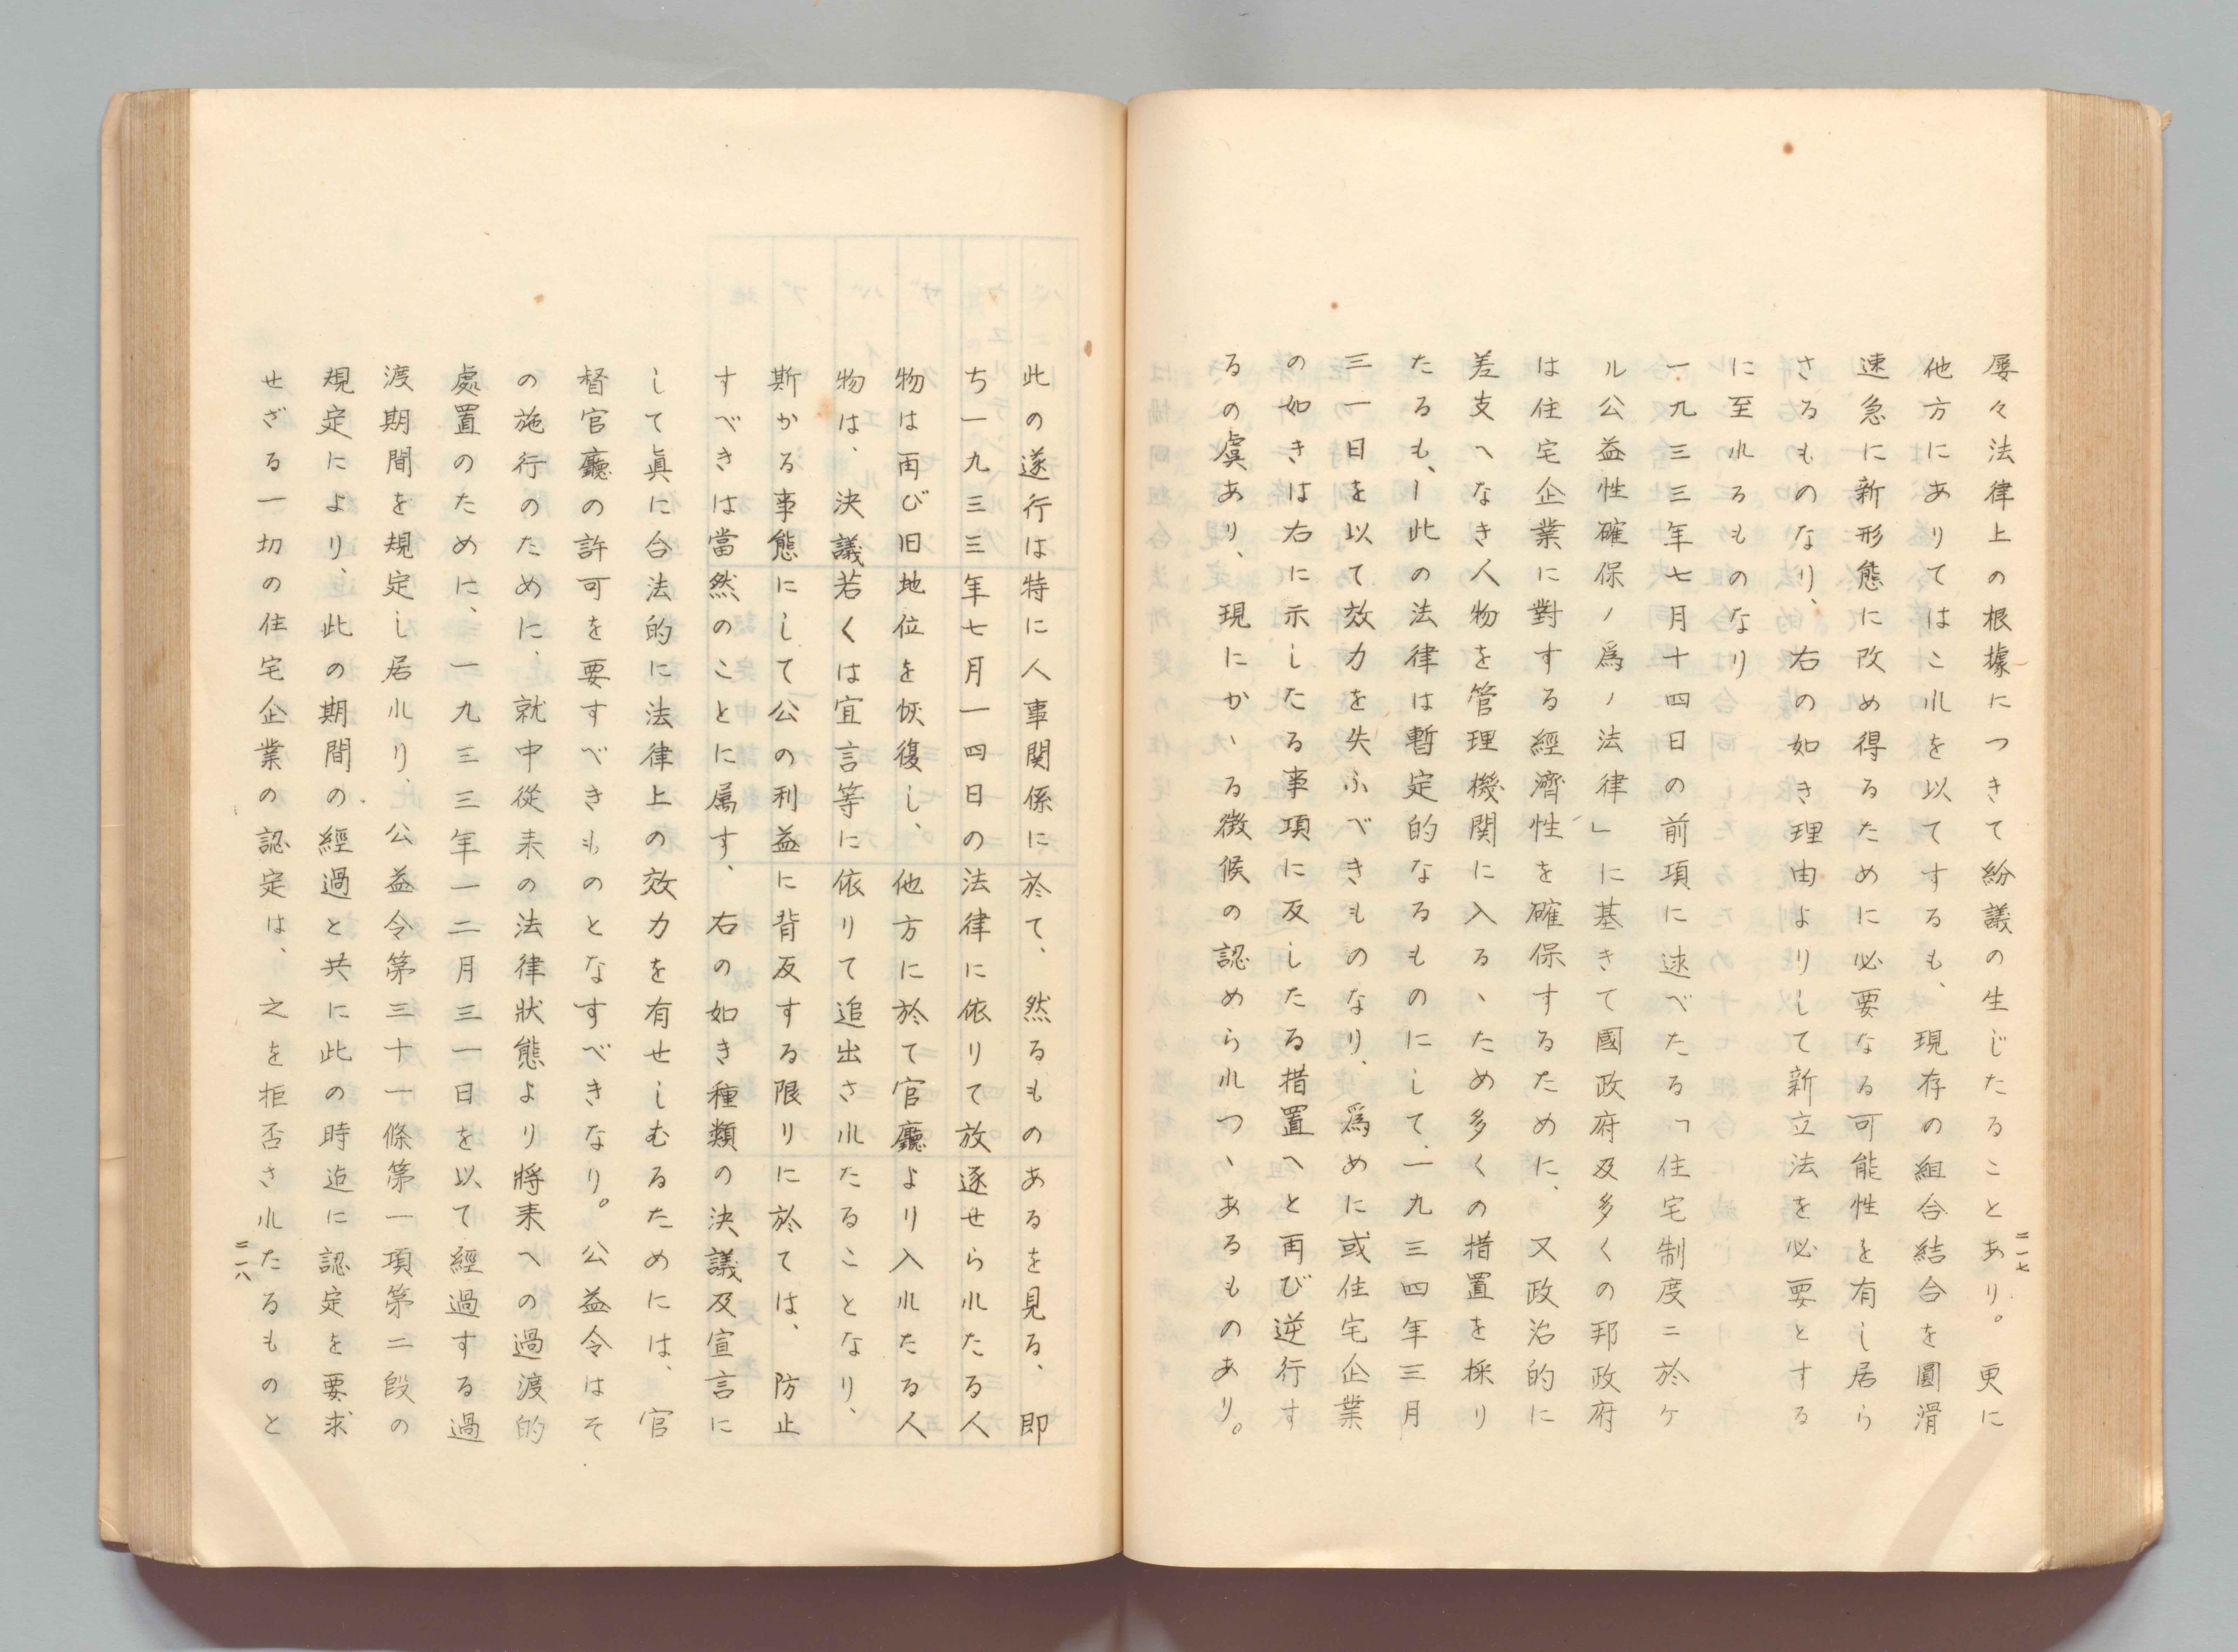 屡々法律上の根據につきて紛議の生じたることあり。更に
他方にありてはこれを以てするも、現存の組合結合を圓滑
速急に新形態に改め得るために必要なる可能性を有し居ら
さるものなり、右の如き理由よりして新立法を必要とする
に至れるものなり
一九三三年七月十四日の前項に述べたる「住宅制度ニ於ケ
ル公益性確保ノ爲ノ法律」に基きて國政府及多くの邦政府
は住宅企業に對する經濟性を確保するために、又政治的に
差支へなき人物を管理機関に入るゝため多くの措置を採り
たるも、ー此の法律は暫定的なるものにして、一九三四年三月
三一日を以て效力を失ふべきものなり、爲めに或住宅企業
の如きは右に示したる事項に反したる措置へと再び逆行す
るの虞あり、現にかゝる徴候の認められつゝあるものあり。
二一七
此の遂行は特に人事関係に於て、然るものあるを見る、即
ち一九三三年七月一四日の法律に依りて放逐せられたる人
物は再び旧地位を恢復し、他方に於て官廳より入れたる人
物は、決議若くは宣言等に依りて追出されたることなり、
斯かる事態にして公の利益に背反する限りに於ては、防止
すべきは當然のことに属す、右の如き種類の決議及宣言に
して眞に合法的に法律上の效力を有せしむるためには、官
督官廳の許可を要すべきものとなすべきなり。公益令はそ
の施行のために、就中從来の法律狀態より將来への過渡的
處置のために、一九三三年一二月三一日を以て經過する過
渡期間を規定し居れり、公益令第三十一條第一項第二段の
規定により、此の期間の經過と共に此の時迄に認定を要求
せざる一切の住宅企業の認定は、之を拒否されたるものと
二一八